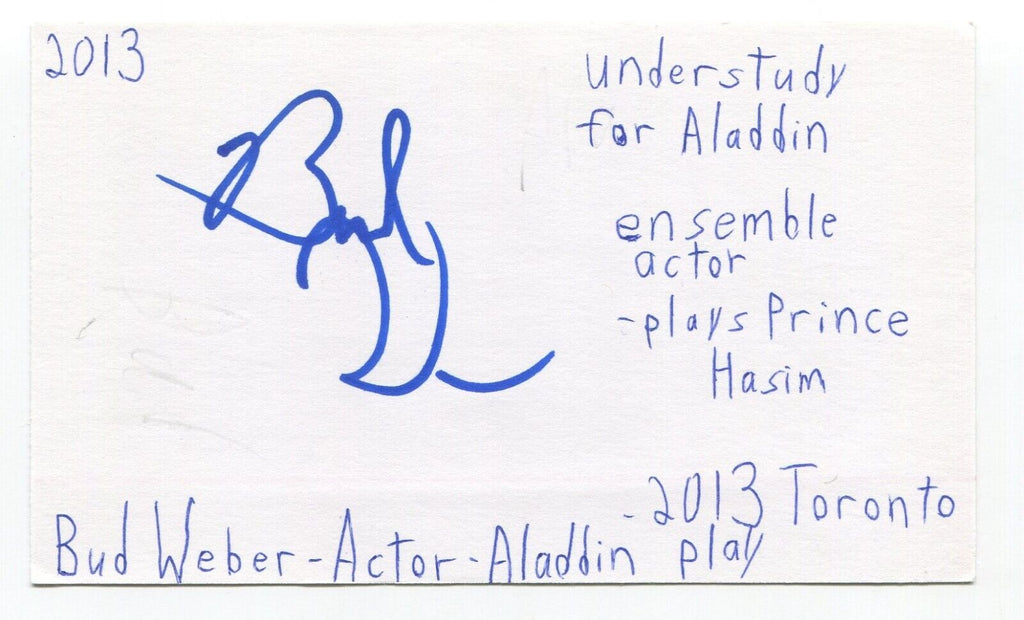 2013
understudy
for Aladdin
ensemble
actor
-plays Prince
Hasim
-2013 Toronto
Bud Weber-Actor-Aladdin play